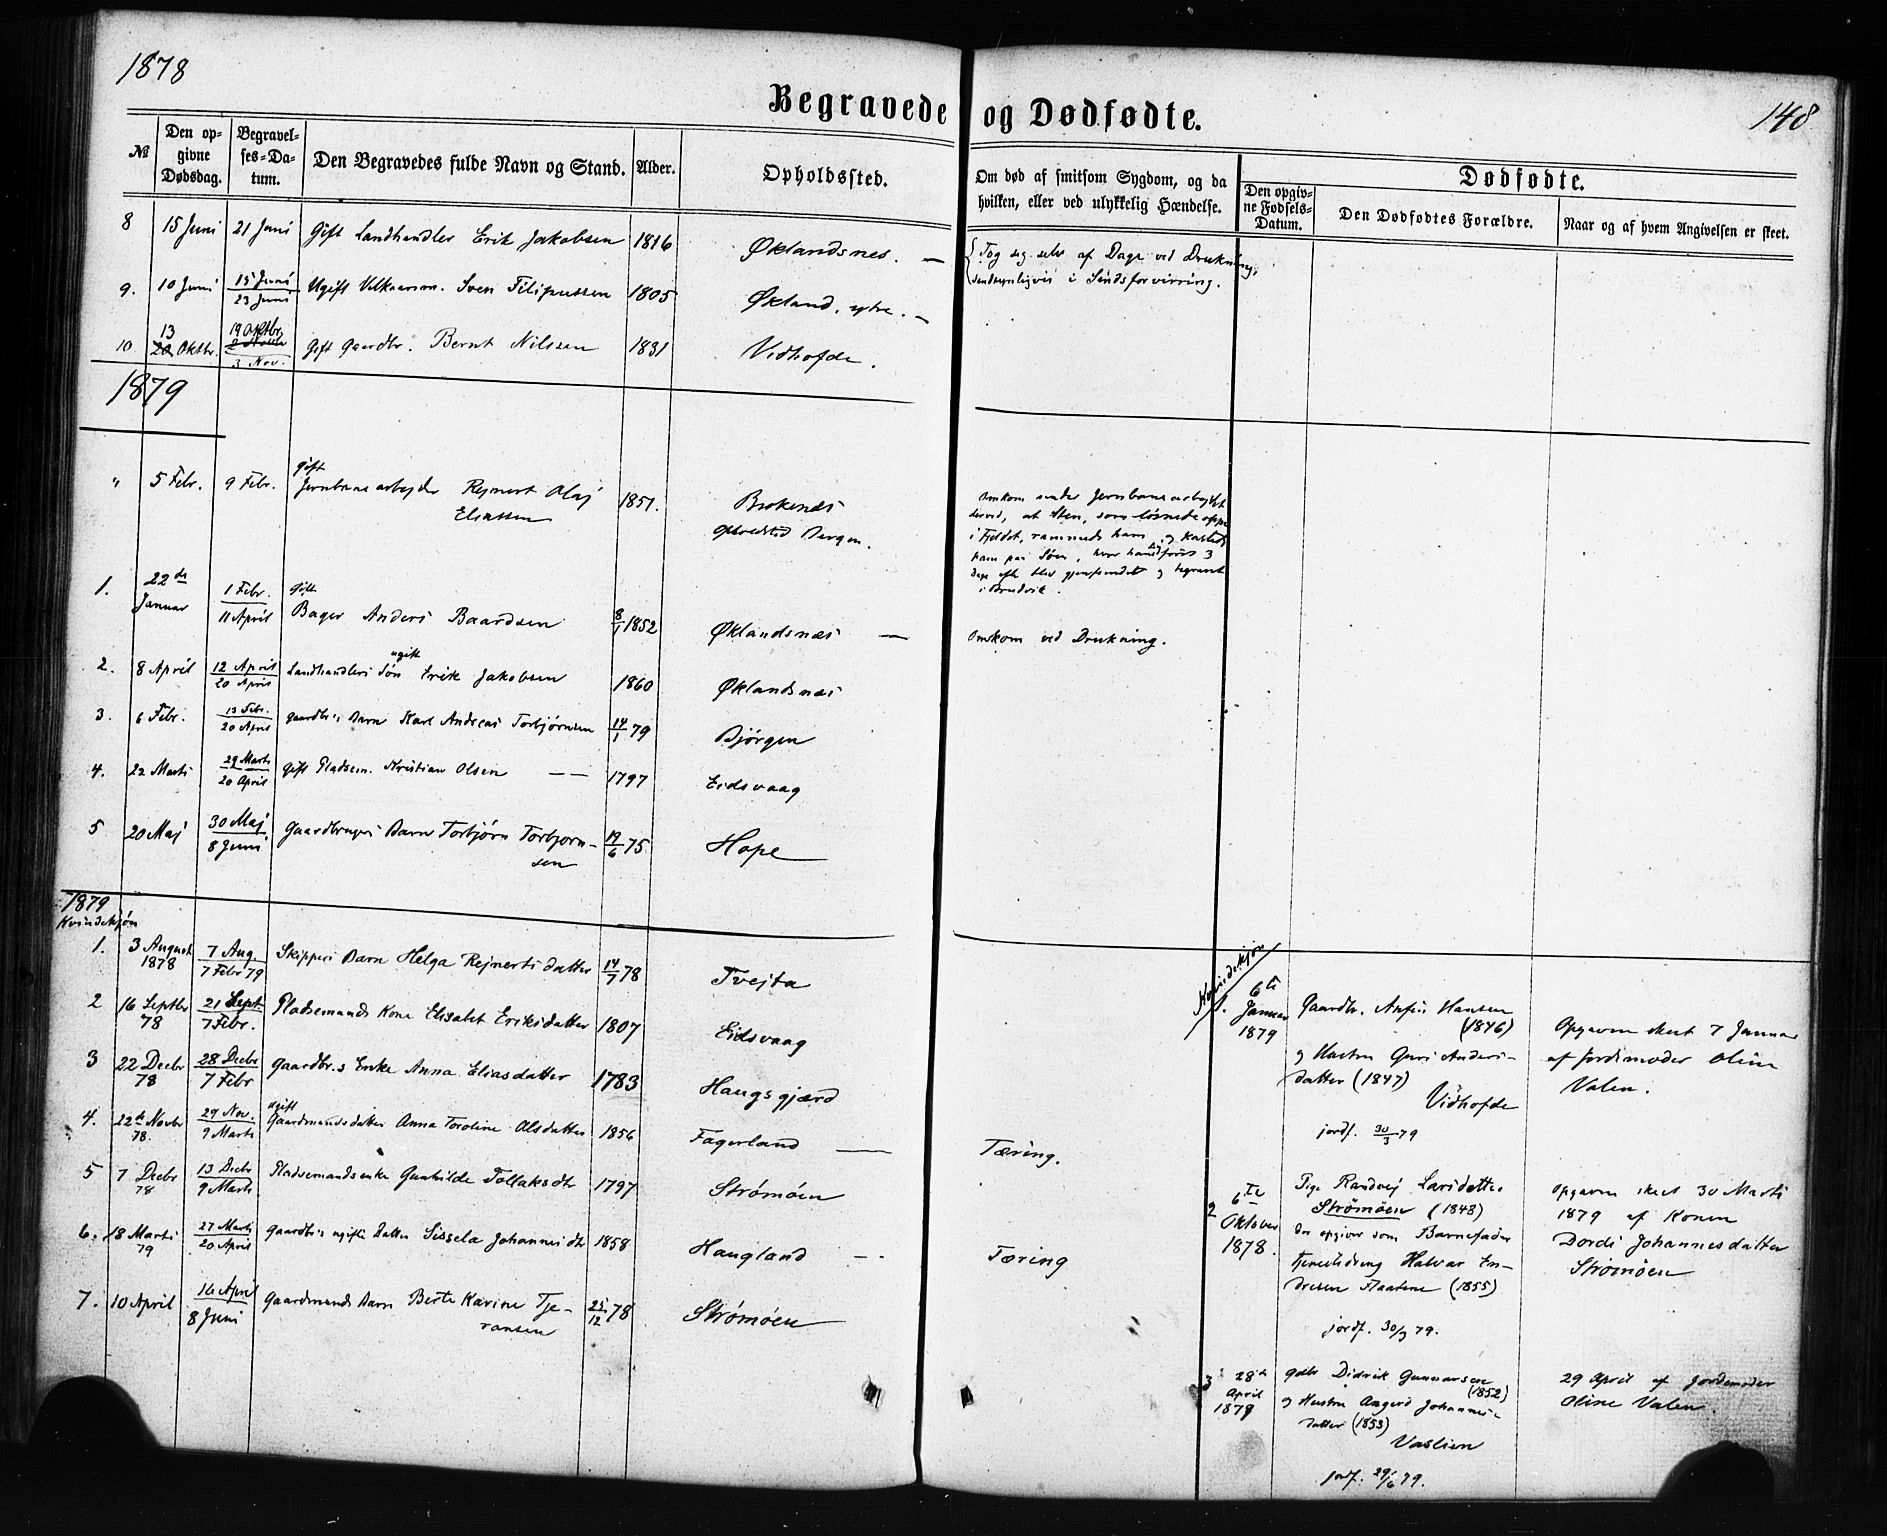 1878
148
Begravede og Dødfødte.
№
Den opgivne Dødsdag.
Begravelses-Datum.
Den Begravedes fulde Navn og Stand.
Alder.
Opholdssted.
Om død af smitsom Sygdom, og da hvilken, eller ved ulykkelig Hændelse.
Dødfødte.
Den opgivne Fødsels-Datum.
Den Dødfødtes Forældre.
Naar og af hvem Angivelsen er skeet.
8 15 Juni 21 Juni Gift Landhandler Erik Jakobsen 1816 Øklandsnes. —
{Tog sig selv af Dage ved Drukning,
sandsynligvis i Sindsforvirring.
9. 10 Juni 15 Juni / 23 Juni Ugift Sven Filipussen 1805 Økland, ytre. —
10 13 Oktbr. 19 Oktbr. / 3 Nov. Gift Gaardbr. Bernt Nilssen 1831 Vidhofde.
1879
" 5 Febr. 9 Febr. Gift
Jernbanearbejder Rejnert Olaj
Eliassen 1851. Brokenes
Opholdsted Bergen.
Omkom under Jernbanearbejdet
derved, at Sten, som løsnede oppe
i Fjeldet, rammede ham og kastede
ham paa Søen, hvor han først 3
Dage efter blev gjenfundet og begravet
i Bruvik.
1. 22de Januar 1 Febr. / 11 April Gift
Bager Anders Baardsen 8/1 1852 Øklandsnæs — Omkom ved Drukning.
2. 8 April 12 April / 20 April Landhandlers Søn ugift Erik Jakobsen 1860 Øklandsnæs
3. 6 Febr. 13 Febr. / 20 April Gaardbr.s Barn Karl Andreas Torbjørnsen 14/1 79 Bjørgen
4. 22 Marts 29 Marts / 20 April Gift Pladsem. Kristian Olsen — — 1797 Eidsvaag
5 20 Maj 30 Maj / 8 Juni Gaardbrugers Barn Torbjørn Torbjørn-
sen 19/6 75 Hope
1879
Kvindekjøn
1. 3 August 1878 7 Aug. / 7 Febr 79 Skippers Barn Helga Rejnertsdatter 14/7 78 Tvejta
2 16 Septbr 78 21 Sept / 7 Febr. Pladsemands Kone Elisabet Eriksdatter 1807 Eidsvaag
3 22 Decbr 78 28 Decbr / 7 Febr Gaardbr.s Enke Anna Eliasdatter 1783 Haugsgjærd
4. 22de Novbr 78. 29 Nov. / 9 Marts ugift
Gaardmandsdatter Anna Toroline Olsdatter 1856 Fagerland — Tæring.
5 7 Decbr 78 13 Decbr / 9 Marts Pladsemandsenke Gunhilde Tollaksdtr 1797 Strømøen
6. 18 Marts 79 27 Marts / 20 April Gaardbr.s ugifte Datter Sissela Johannesdtr 1858 Haugland — Tæring
7. 10 April 16 April / 8 Juni Gaardmands Barn Berte Karine Tje-
ransen 25/12 78 Strømøen
Kvindekjøn
1. 6te Januar 1879
Gaardbr. Anfin Hansen
(1846)
og Hustru Guri Anders-
datter (1847)
Vidhofde
jordf. 30/3 79
Opgaven skeet 7 Januar
af Jordemoder Oline
Valen.
2 6te Oktober 1878.
Pige Randvej Larsdatter
Strømøen (1848)
der opgiver som Barnefader
Halvar En-
dresen Flaatene (1855)
jordf. 30/3 79.
Opgaven skeet 30 Marts
1879 af Konen
Dordi Johannesdatter
Strømøen
3 28de April 1879
Gdbr Didrik Gunnarsen
(1852)
og Hustru Angerd Johannes-
datter (1853)
Vaslien
jordf. 29/6 79.
29 April af Jordemoder
Oline Valen.